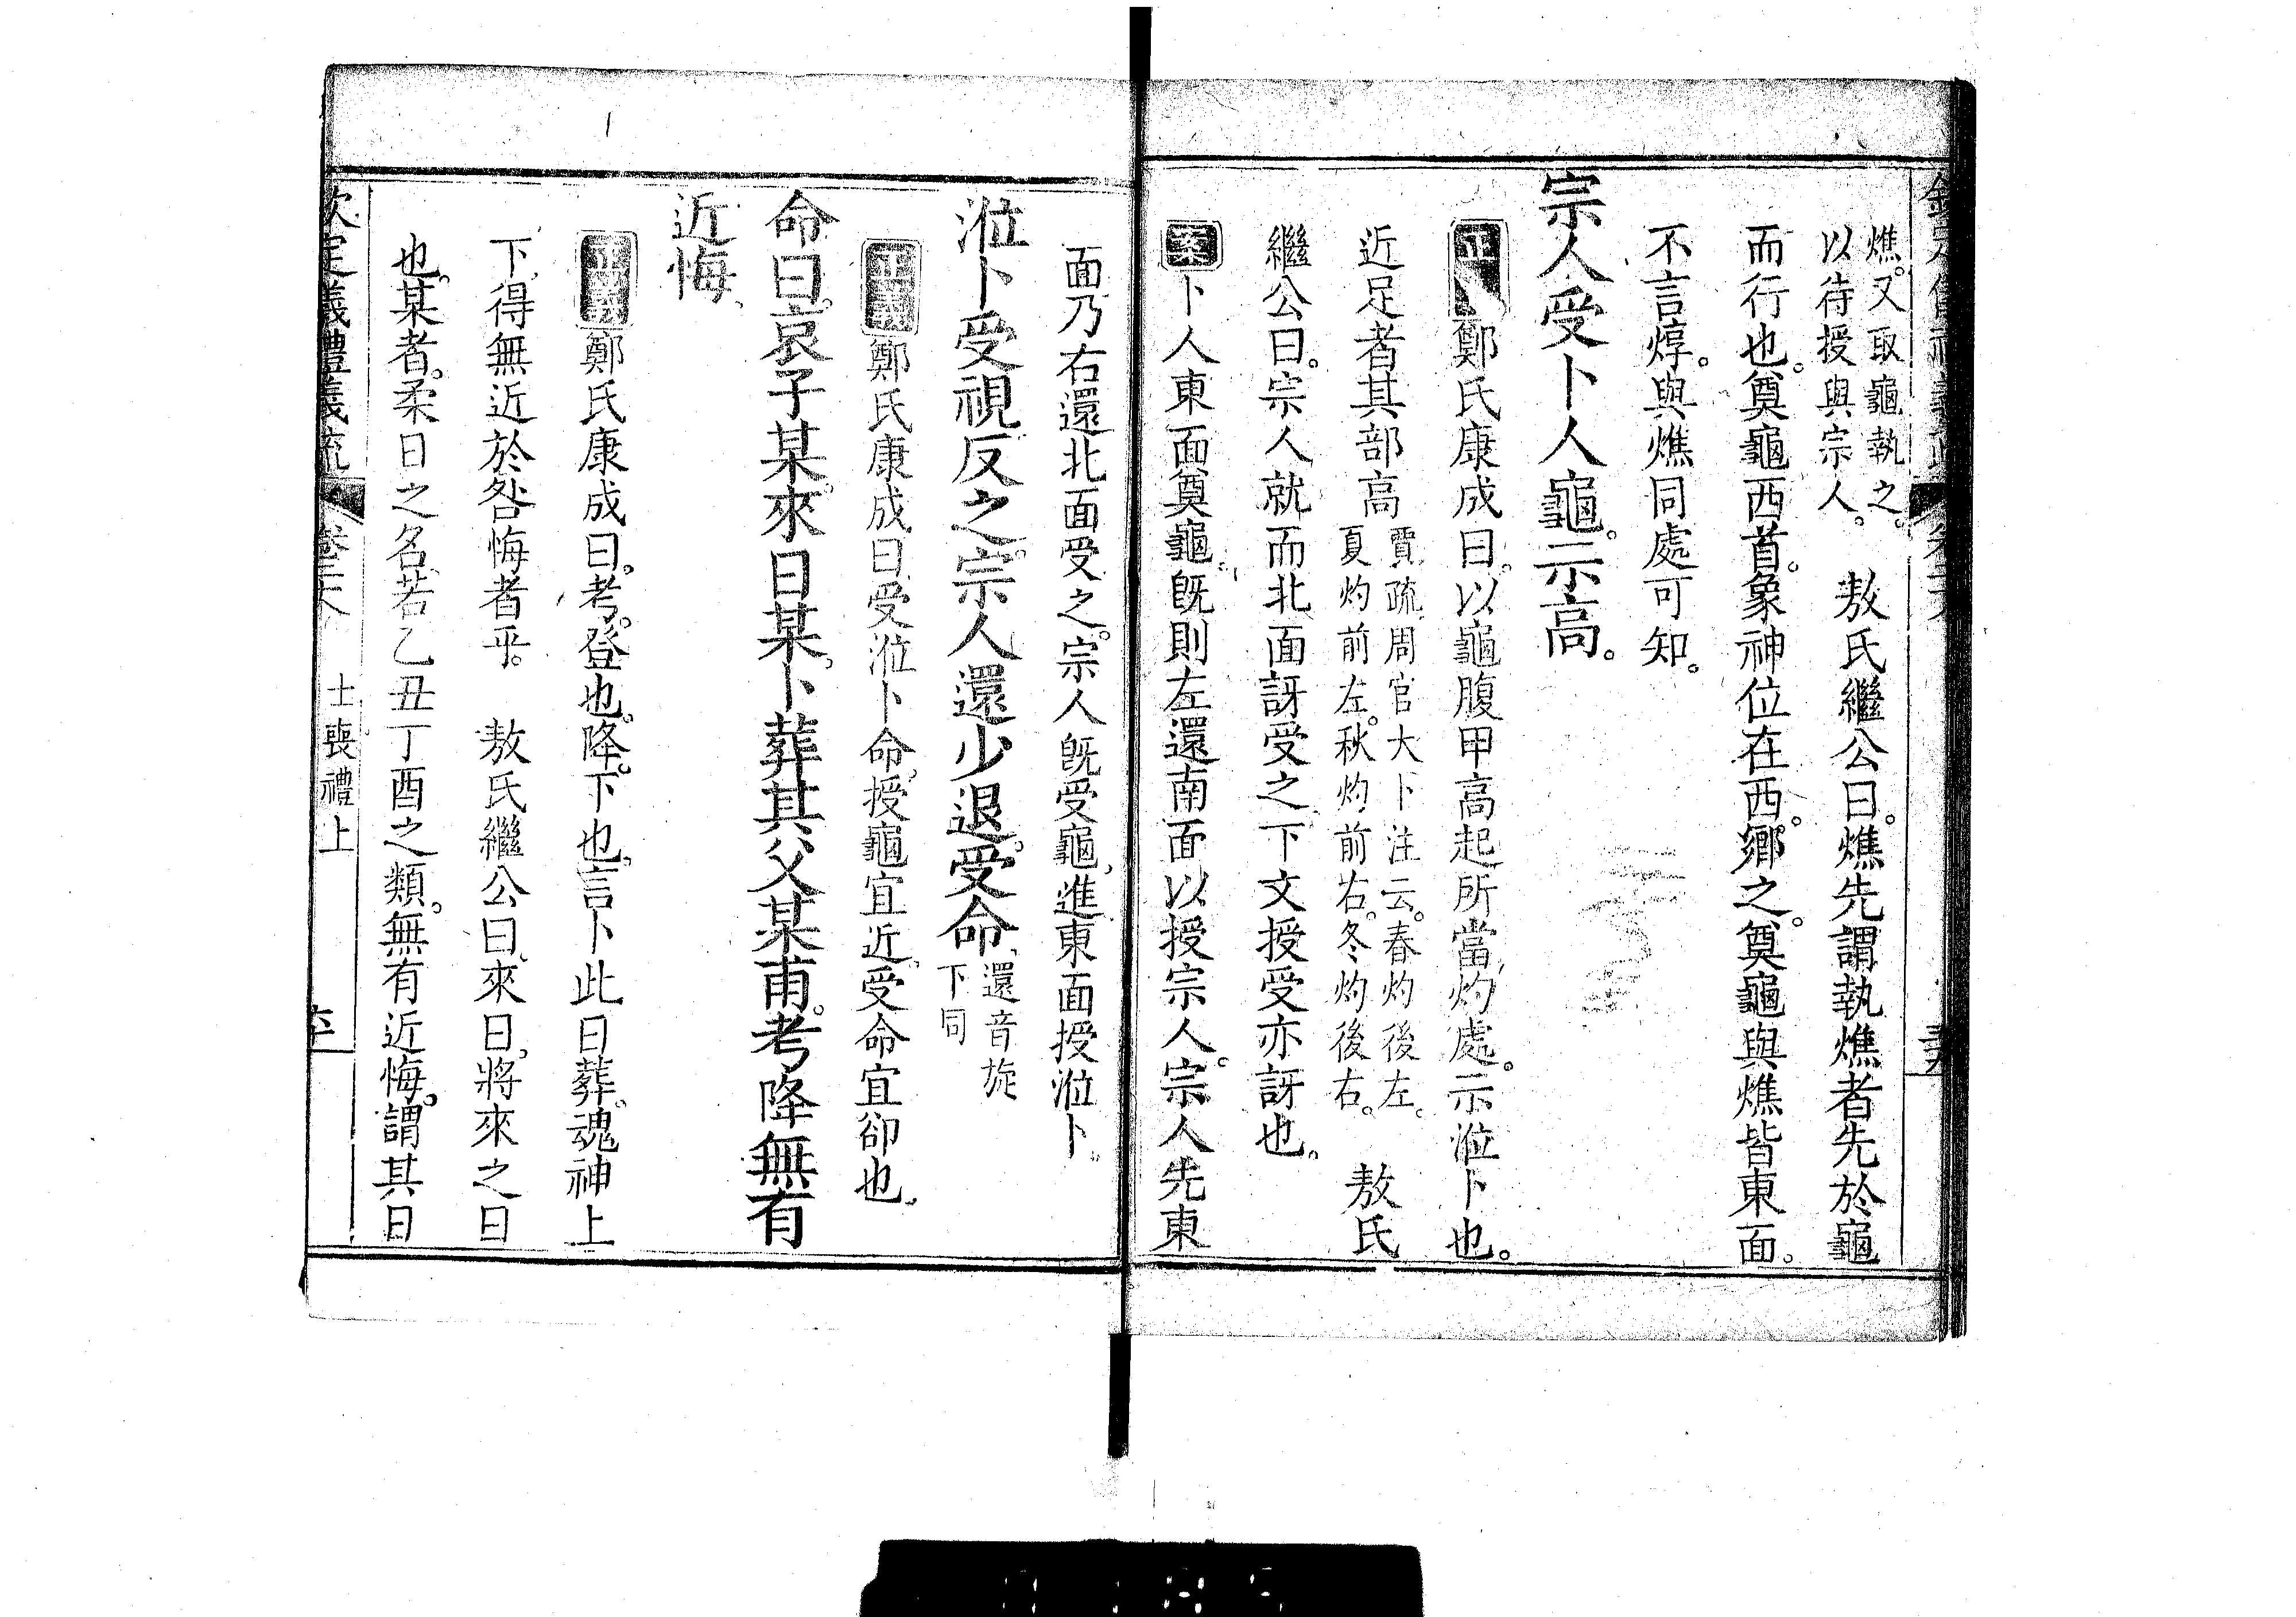 燋。又取龜執之。
以待授與宗人。
敖氏繼公曰。燋先謂執燋者先於龜
而行也。奠龜西首。象神位在西。鄉之。奠龜與燋皆東面。
不言焞。與燋同處可知。
宗人受卜人龜。示高。
正 鄭氏康成曰。以龜腹甲高起所當灼處。示涖卜也。
近足者其部高
賈疏。周官大卜注云。春灼後左。
夏灼前左。秋灼前右。冬灼後右。
敖氏
繼公曰。宗人就而北面訝受之。下文授受亦訝也。
案 卜人東面奠龜。旣則左還南面以授宗人。宗人先東
面乃右還北面受之。宗人旣受龜。進東面授涖卜。
涖卜受視反之。宗人還少退。受命。
還音旋
下同
正義 鄭氏康成曰。受涖卜命。授龜宜近。受命宜卻也。
命曰。哀子某。來日某。卜葬其父某甫。考降無有
近悔。
正義 鄭氏康成曰。考。登也。降。下也。言卜此日葬。魂神上
下。得無近於咎悔者乎。 敖氏繼公曰。來日。將來之日
也。某者。柔日之名。若乙丑丁酉之類。無有近悔。謂其日
欽定儀禮義疏 卷二十八 士喪禮上